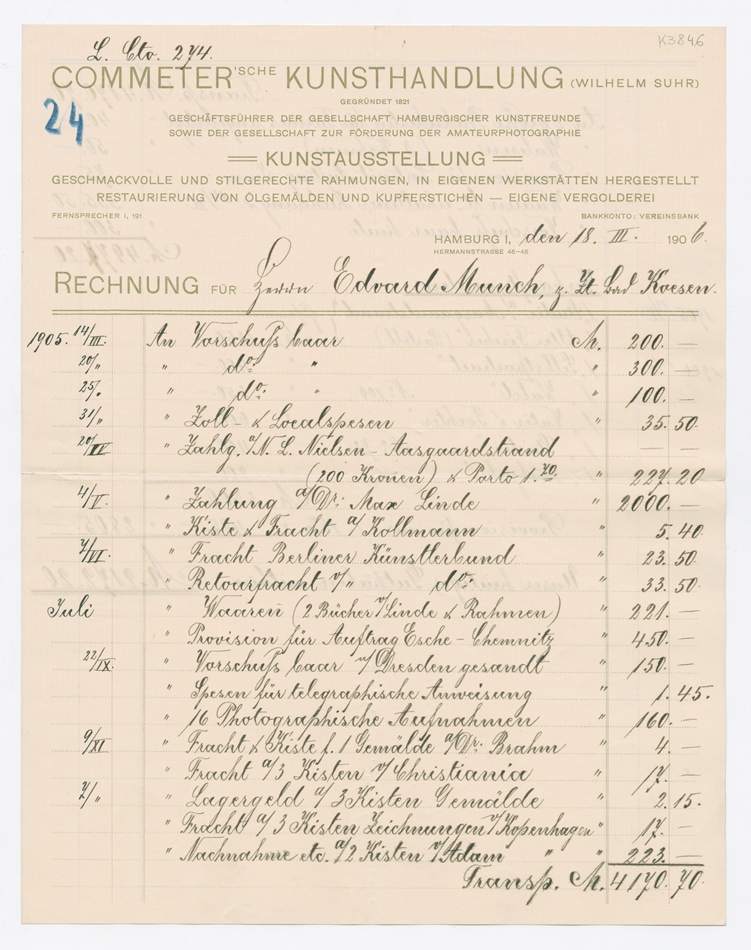 K3846
L. Cto. 274.
COMMETER'SCHE KUNSTHANDLUNG (WILHELM SUHR)
24
GEGRÜNDET 1821
GESCHÄFTSFÜHRER DER GESELLSCHAFT HAMBURGISCHER KUNSTFREUNDE
SOWIE DER GESELLSCHAFT ZUR FÖRDERUNG DER AMATEURPHOTOGRAPHIE
KUNSTAUSSTELLUNG
GESCHMACKVOLLE UND STILGERECHTE RAHMUNGEN, IN EIGENEN WERKSTÄTTEN HERGESTELLT
RESTAURIERUNG VON ÖLGEMÄLDEN UND KUPFERSTICHEN — EIGENE VERGOLDEREI
FERNSPRECHER I, 191 BANKKONTO: VEREINSBANK
HAMBURG I, den 18. III. 1906.
HERMANNSTRASSE 46-48
RECHNUNG FÜR Herrn Edvard Munch, z. Zt. Bad Koesen.
1905. 14/III. An Vorschuss baar M. 200. —
20/" " do: " " 300. —
25/" " do: " " 100. —
31/" " Zoll- & Localspesen " 35. 50.
20/IV " Zahlg. a/N. L. Nielsen - Aasgaardstrand — —
(200 Kronen) & Porto 1.70. " 227. 20
4/V. " Zahlung a/Dr: Max Linde " 2000. —
" Kiste & Fracht a/Kollmann " 5. 40
7/VI. " Fracht Berliner Künstlerbund " 23. 50
" Retourfracht v/ " do: " 33. 50
Juli " Waaren (2 Bücher v/Linde & Rahmen) " 221. —
" Provision für Auftrag Esche - Chemnitz " 450. —
22/IX. " Vorschuss baar n/Dresden gesandt " 150. —
" Spesen für telegraphische Anweisung " 1. 45.
" 16 Photographische Aufnahmen " 160. —
9/XI " Fracht & Kiste f. 1 Gemälde a/Dr: Brahm " 4. —
" Fracht a/3 Kisten v/Christiania " 17. —
7/" " Lagergeld a/3 Kisten Gemälde " 2. 15.
" Fracht a/3 Kisten Zeichnungen v/Kopenhagen " 17. —
" Nachnahme etc. a/2 Kisten v/Adam " " 223. —
Transp. M. 4170. 70.